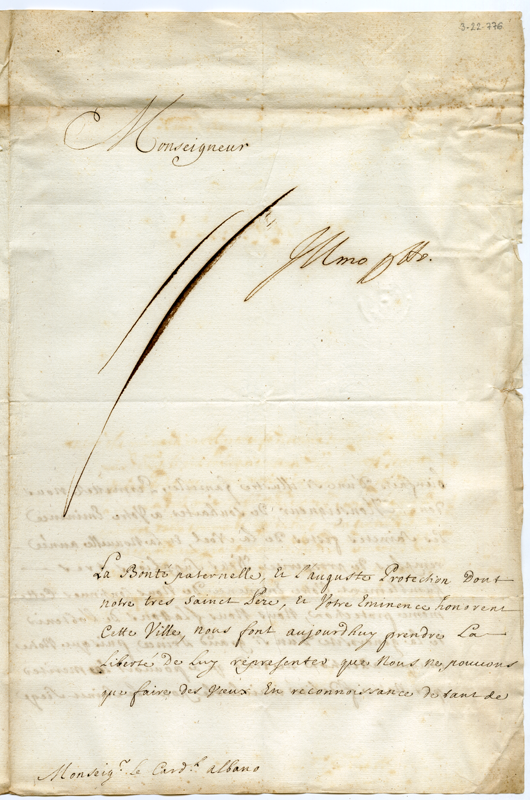 3-22-776
Monseigneur
Illmo
La Bonté paternelle, et l'auguste Protection Dont
notre tres Sainct Pere, et Votre Eminence honorent
Cette Ville, nous font aujourdhuy prendre La
Liberté De Luy répresenter que Nous ne pouvons
que faire des vœux En reconnoissance de tant de
Monseigr. Le Cardl. albano